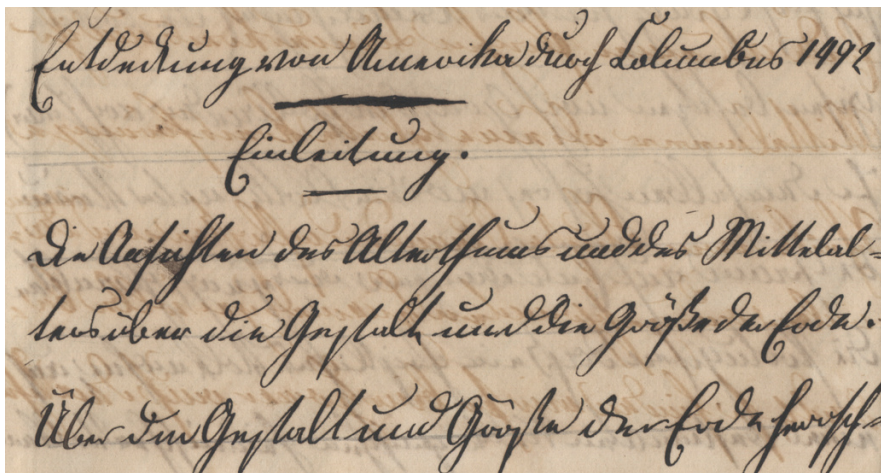 Entdeckung von Amerika durch Columbus 1492
Einleitung.
Die Ansichten des Alterthums und des Mittelal-
ters über die Gestalt und die Größe der Erde.
Über die Gestalt und Größe der Erde herrsch-